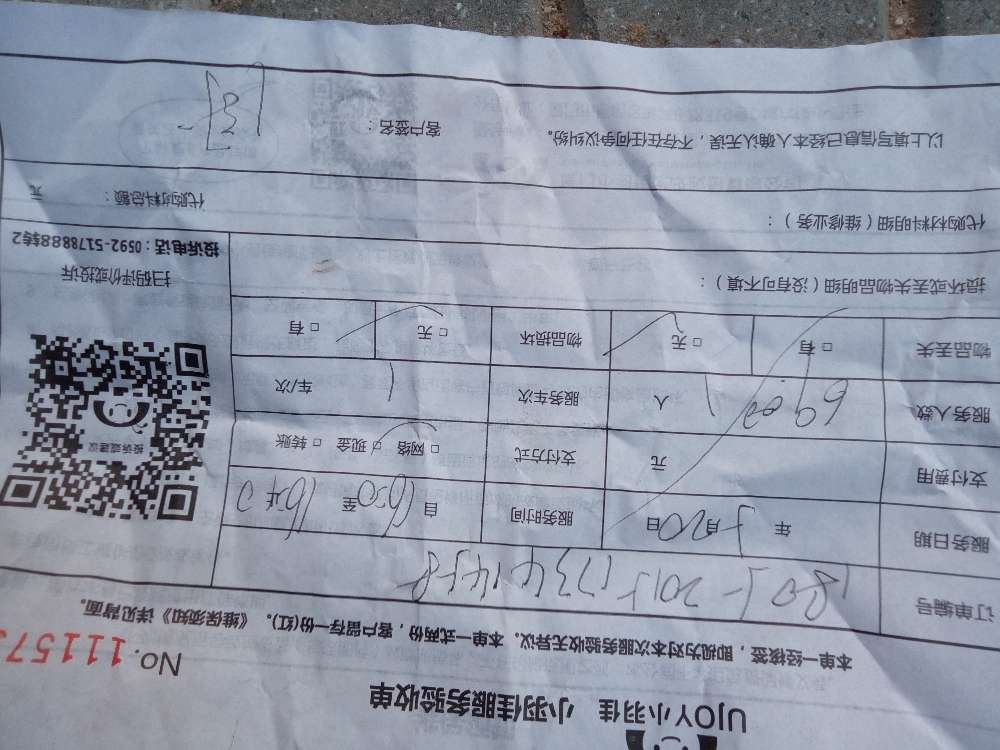 UJOY小羽佳 小羽佳服务验收单
No.111573
本单一经核签，即视为对本次服务验收无异议。本单一式两份，客户留存一份(红)。《维保须知》详见背面。
订单编号
服务日期 年 5月20日 服务时间 自1620至1640
支付费用 元 支付方式 □网络 □现金 □转账
服务人数 1 人 服务车次 1 车/次
物品丢失 □有 □无 物品损坏 □无 □有
投诉或建议
扫码评价或投诉
投诉电话：0592-5178888转2
损坏或丢失物品明细（没有可不填）：
代购材料明细（维修业务）： 代购材料总额： 元
以上填写信息已经本人确认无误，不存在任何争议纠纷。 客户签名：